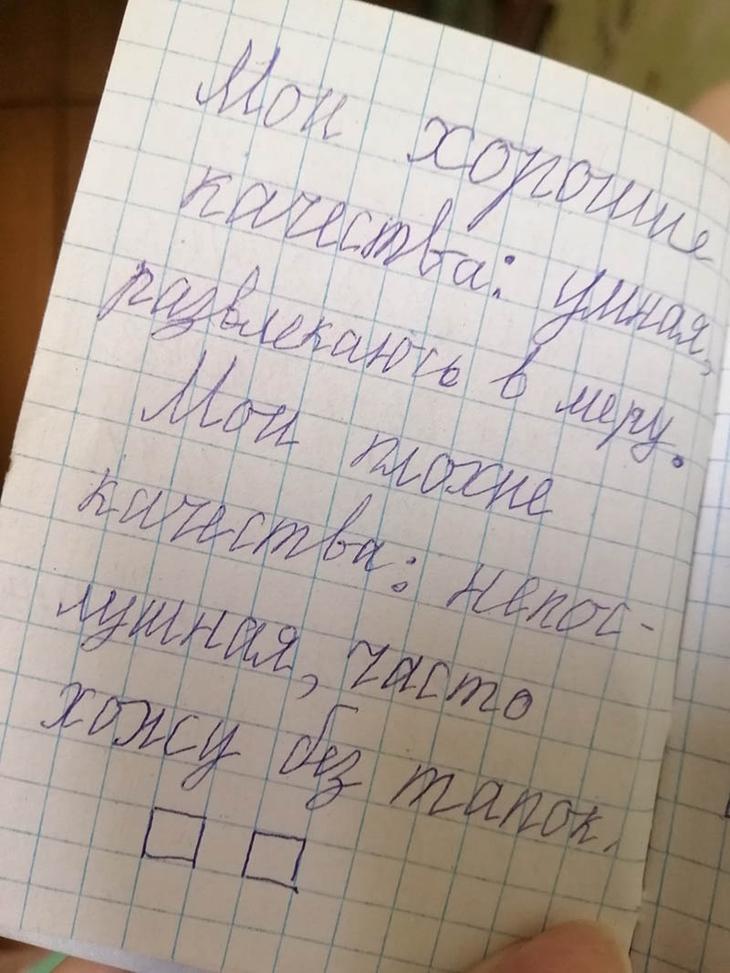 Мои хорошие
качества: умная,
развлекаюсь в меру.
Мои плохие
качества: непос-
лушная, часто
хожу без тапок.